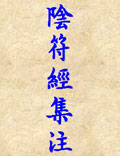 陰符經集注